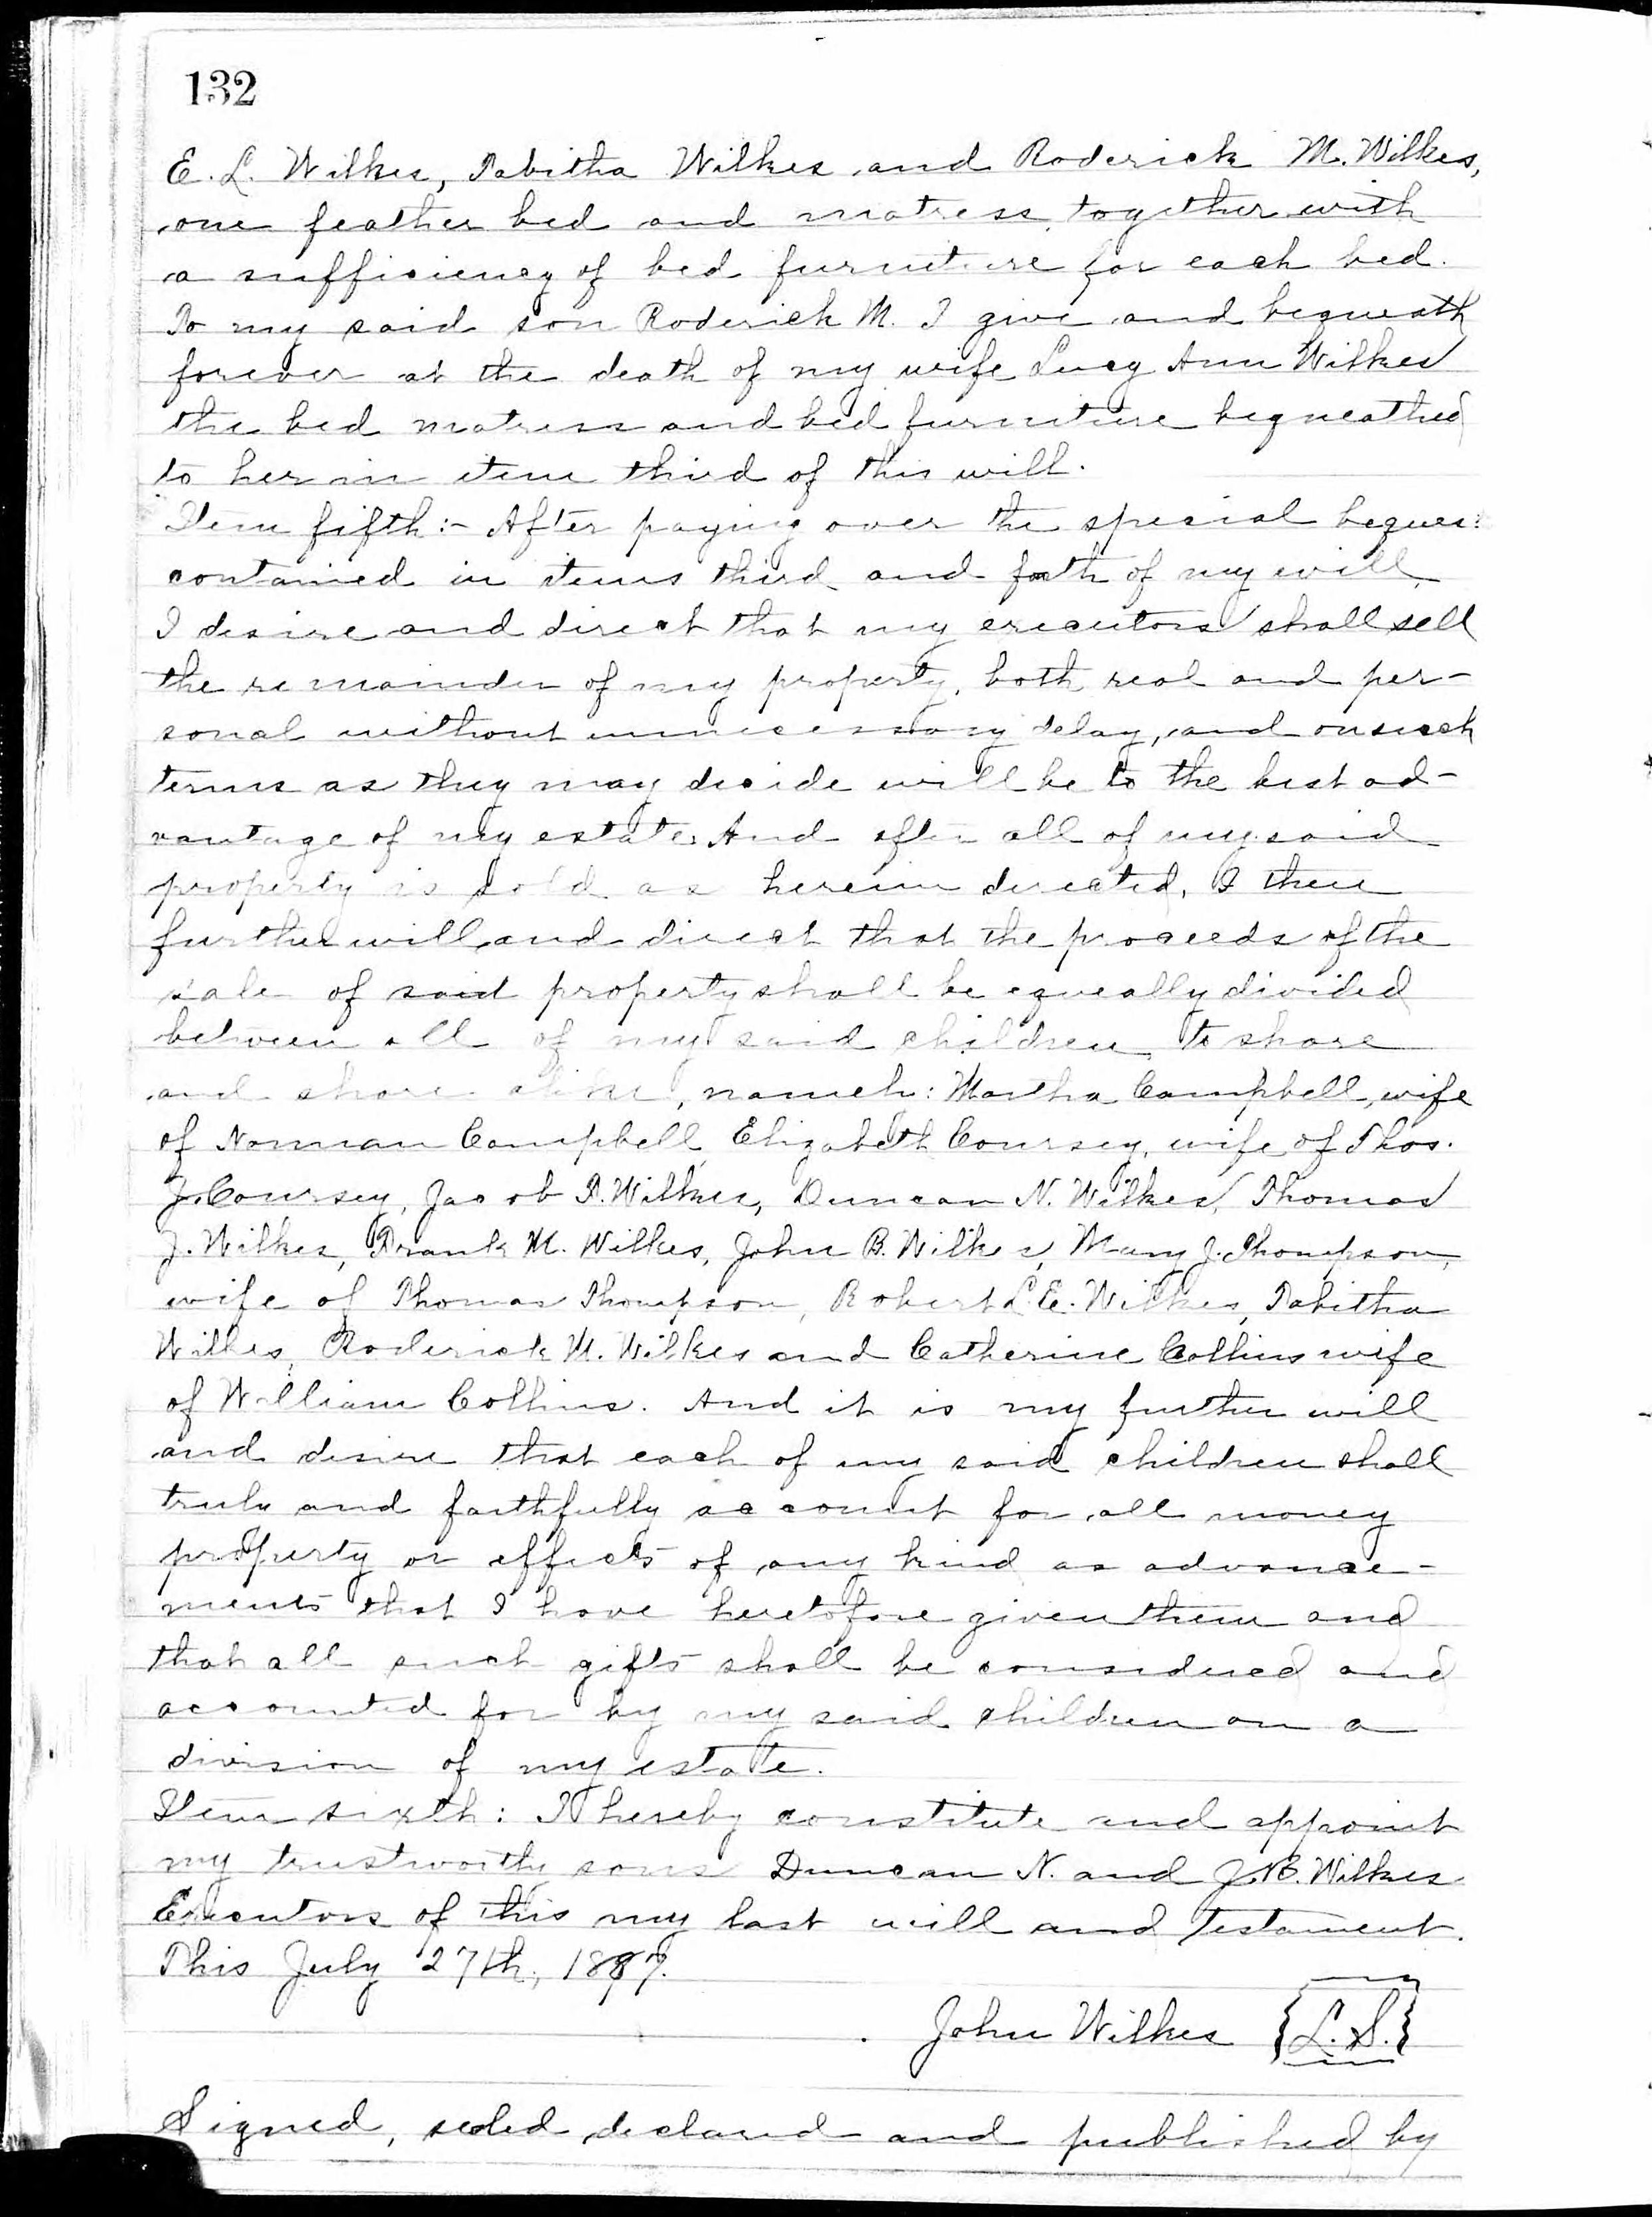 132
E. L. Wilkes, Tabitha Wilkes and Roderick M. Wilkes,
one feather bed and matress, together with
a sufficiency of bed furniture for each bed.
To my said son Roderick M. I give and bequeath
forever at the death of my wife Lucy Ann Wilkes
the bed matress and bed furniture bequeathed
to her in item third of this will.
Item fifth:- After paying over the special
contained in items third and foth of my will
I desire and direct that my executors shall sell
the remainder of my property, both real and per-
sonal without unnecessary delay, and on such
terms as they may decide will be to the best ad-
vantage of my estate. And after all of my said
property is sold as herein directed, I then
further will and direct that the proceeds of the
sale of said property shall be equeally divided
between all of my said children to share
and share alike, namely: Martha Campbell, wife
of Norman Campbell, Elizabeth Coursey, wife of Thos.
J. Coursey, Jacob T. Wilkes, Duncan N. Wilkes, Thomas
J. Wilkes, Frank M. Wilkes, John B. Wilkes, Mary J. Thompson,
wife of Thomas Thompson, Robert L. E. Wilkes, Tabitha
Wilkes, Roderick M. Wilkes and Catherine Collins wife
of William Collins. And it is my further will
and desire that each of my said children shall
truly and faithfully account for all money
property or effects of any kind as advance-
ments that I have heretofore given them and
that all such gifts shall be considered and
accounted for by my said children on a
division of my estate.
Item sixth: I hereby constitute and appoint
my trustworthy sons Duncan N. and J. B. Wilkes
Executors of this my last will and testament.
This July 27th,
John Wilkes {L. S.}
Signed, sealed, declared and published by